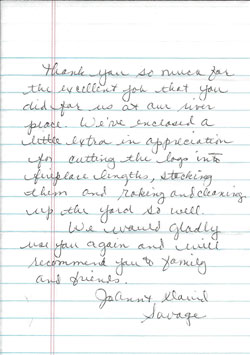 Thank you so much for
the excellent job that you
did for us at our river
place. We've enclosed a
little extra in appreciation
for cutting the logs into
fireplace lengths, stacking
them and raking and cleaning
up the yard so well.
We would gladly
use you again and will
recommend you to family
and friends.
JoAnn & David
Savage